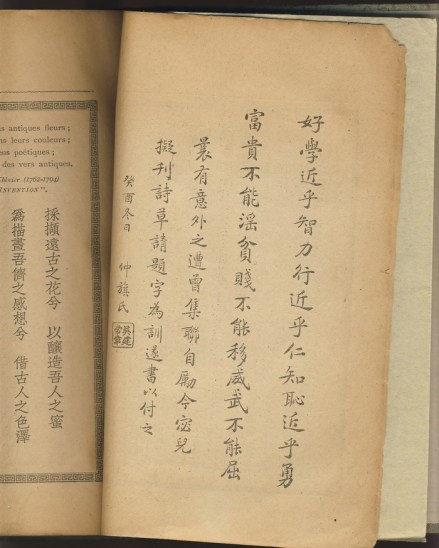 好學近乎智力行近乎仁知恥近乎勇
富貴不能滛貧賤不能移威武不能屈
曩有意外之遭曾集聯自勵今宓兒
擬刊詩草請題字為訓遂書以付之
癸酉冬日 仲旗氏
吳建常章
antiques fleurs;
leurs couleurs;
poétiques;
des vers antiques.
Chénier (1762-1794)
INVENTION".
採擷遠古之花兮 以釀造吾人之蜜
爲描畫吾儕之感想兮 借古人之色澤